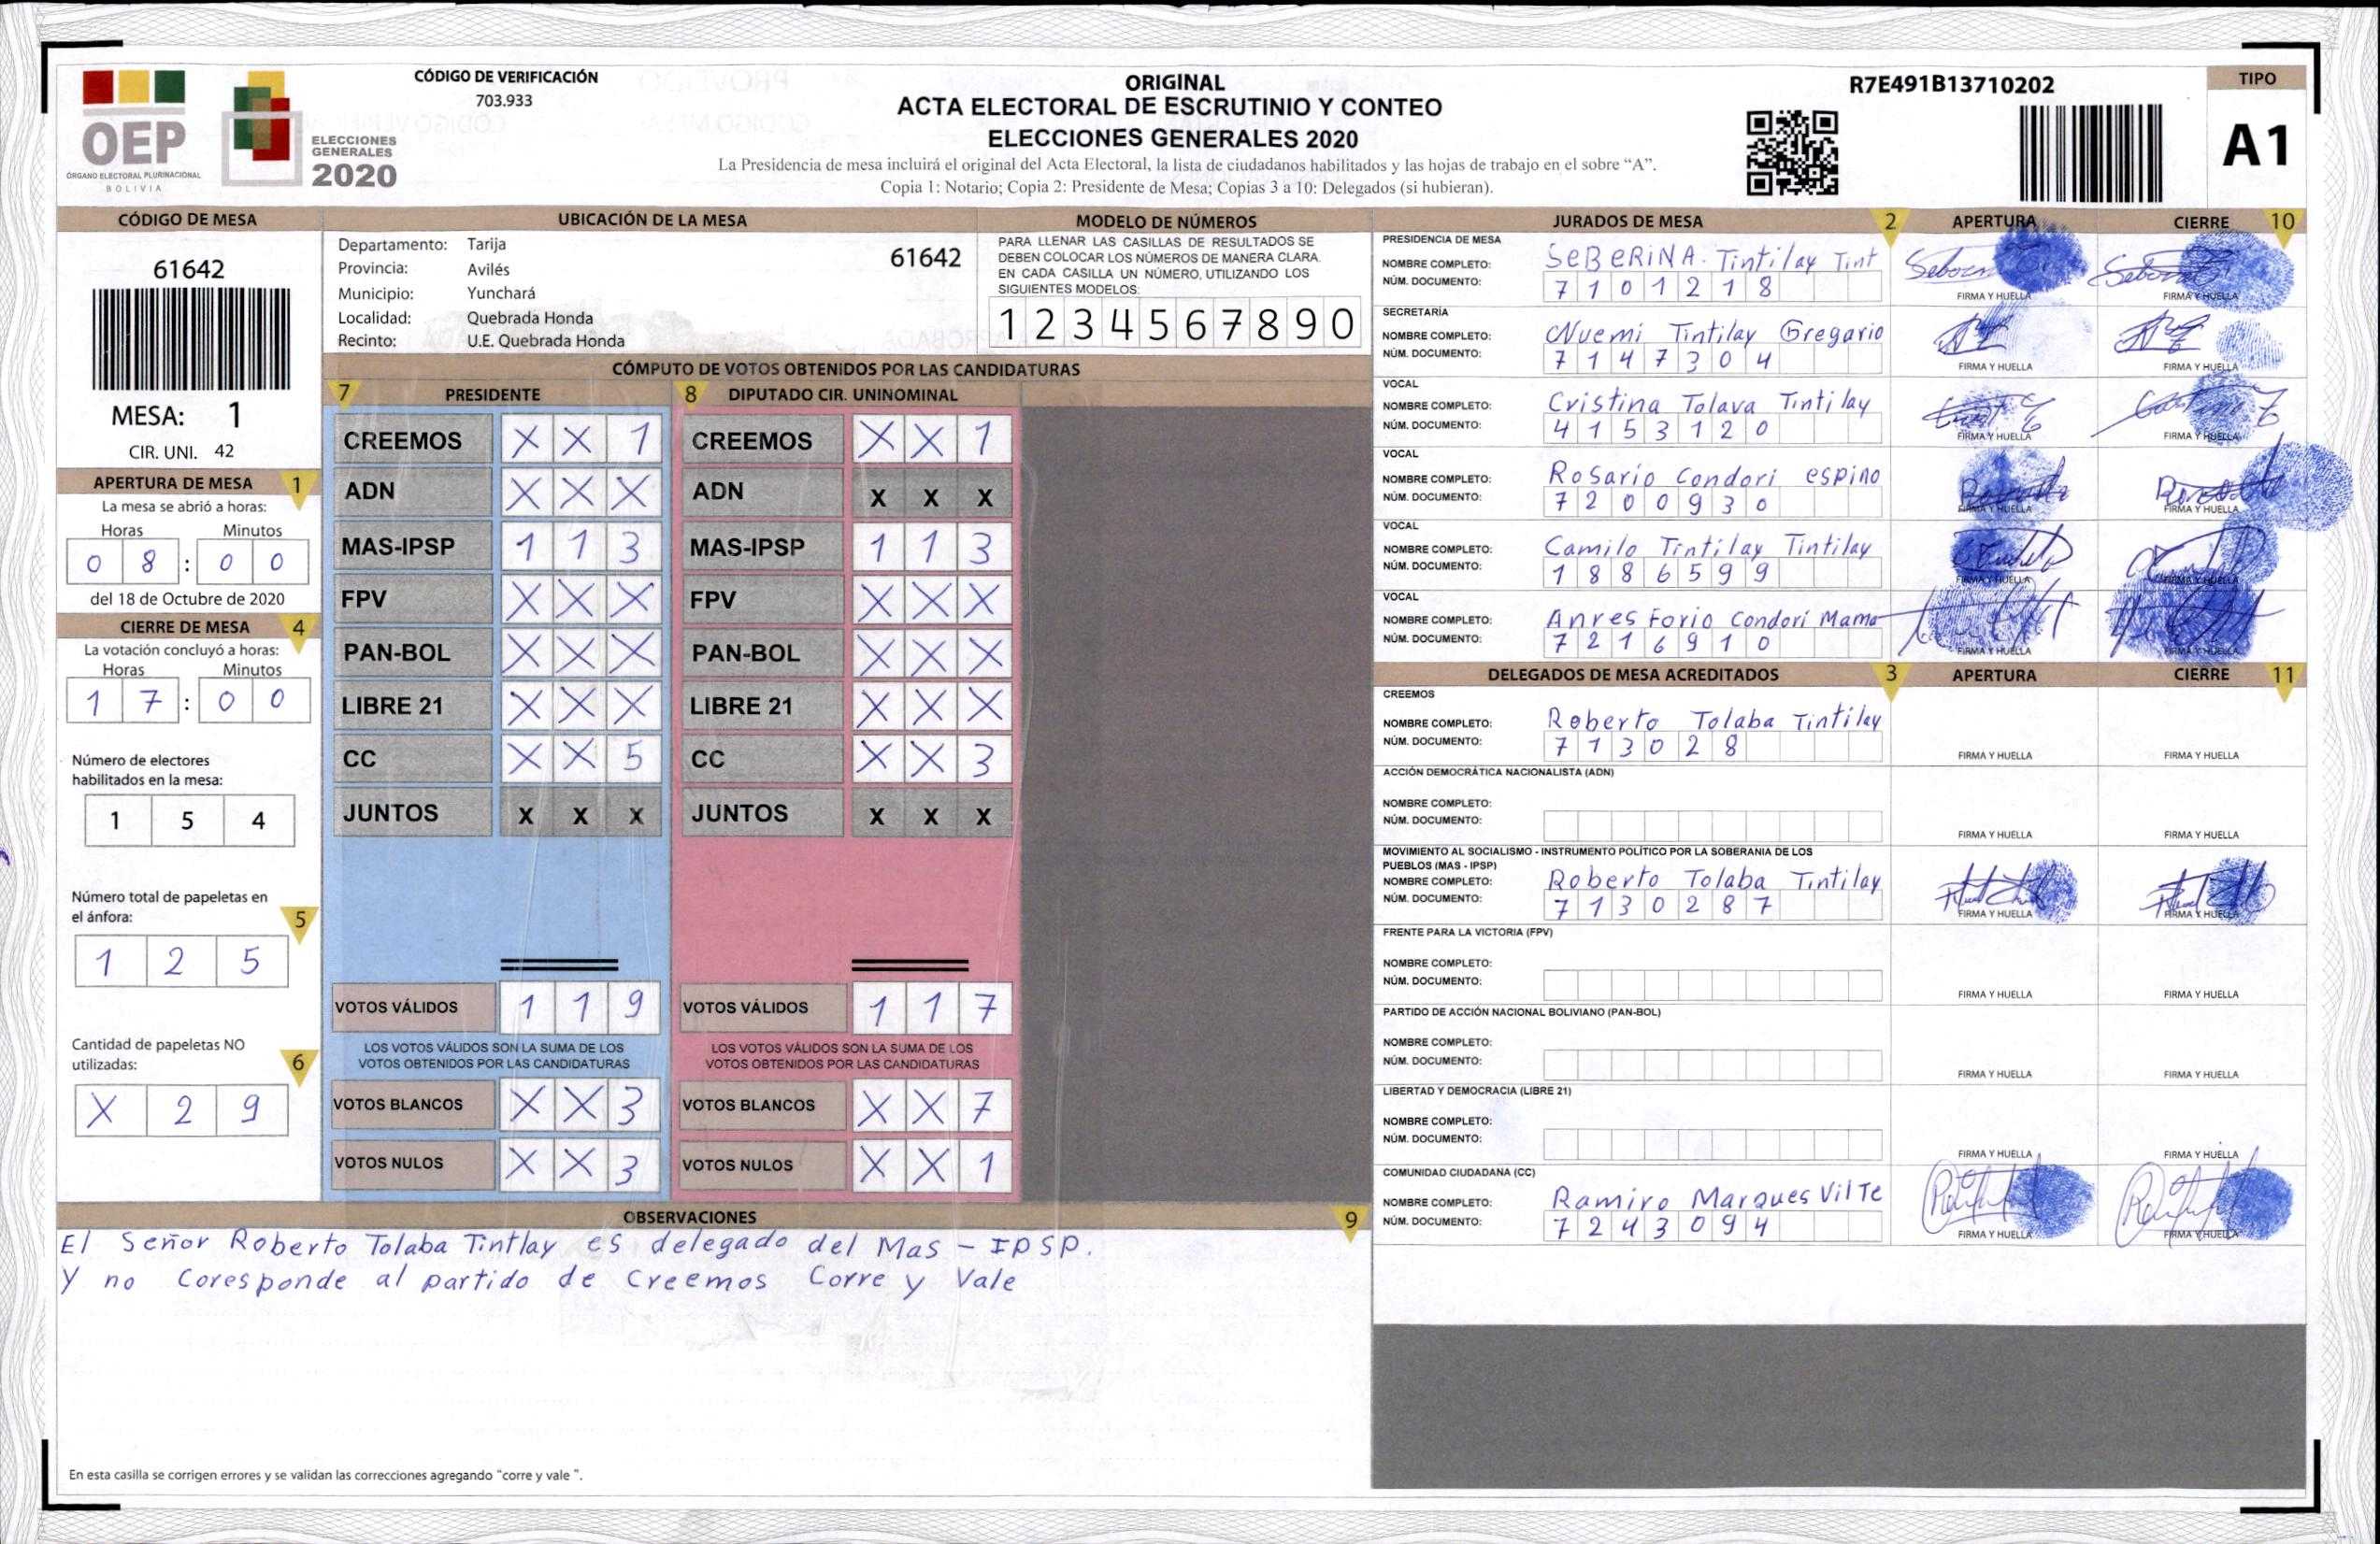 OEP
ÓRGANO ELECTORAL PLURINACIONAL
BOLIVIA
ELECCIONES
GENERALES
2020
CÓDIGO DE VERIFICACIÓN
703.933
ORIGINAL
ACTA ELECTORAL DE ESCRUTINIO Y CONTEO
ELECCIONES GENERALES 2020
La Presidencia de mesa incluirá el original del Acta Electoral, la lista de ciudadanos habilitados y las hojas de trabajo en el sobre “A”.
Copia 1: Notario; Copia 2: Presidente de Mesa; Copias 3 a 10: Delegados (si hubieran).
R7E491B13710202
TIPO
A1
CÓDIGO DE MESA
61642
MESA: 1
CIR. UNI. 42
APERTURA DE MESA 1
La mesa se abrió a horas:
Horas Minutos
0 8 : 0 0
del 18 de Octubre de 2020
CIERRE DE MESA 4
La votación concluyó a horas:
Horas Minutos
1 7 : 0 0
Número de electores
habilitados en la mesa:
1 5 4
Número total de papeletas en
el ánfora: 5
1 2 5
Cantidad de papeletas NO
utilizadas: 6
X 2 9
UBICACIÓN DE LA MESA
Departamento: Tarija 61642
Provincia: Avilés
Municipio: Yunchará
Localidad: Quebrada Honda
Recinto: U.E. Quebrada Honda
MODELO DE NÚMEROS
PARA LLENAR LAS CASILLAS DE RESULTADOS SE
DEBEN COLOCAR LOS NÚMEROS DE MANERA CLARA.
EN CADA CASILLA UN NÚMERO, UTILIZANDO LOS
SIGUIENTES MODELOS:
1 2 3 4 5 6 7 8 9 0
CÓMPUTO DE VOTOS OBTENIDOS POR LAS CANDIDATURAS
7 PRESIDENTE 8 DIPUTADO CIR. UNINOMINAL
CREEMOS X X 1 CREEMOS X X 1
ADN X X X ADN X X X
MAS-IPSP 1 1 3 MAS-IPSP 1 1 3
FPV X X X FPV X X X
PAN-BOL X X X PAN-BOL X X X
LIBRE 21 X X X LIBRE 21 X X X
CC X X 5 CC X X 3
JUNTOS X X X JUNTOS X X X
VOTOS VÁLIDOS 1 1 9 VOTOS VÁLIDOS 1 1 7
LOS VOTOS VÁLIDOS SON LA SUMA DE LOS LOS VOTOS VÁLIDOS SON LA SUMA DE LOS
VOTOS OBTENIDOS POR LAS CANDIDATURAS VOTOS OBTENIDOS POR LAS CANDIDATURAS
VOTOS BLANCOS X X 3 VOTOS BLANCOS X X 7
VOTOS NULOS X X 3 VOTOS NULOS X X 1
OBSERVACIONES 9
El Señor Roberto Tolaba Tintlay es delegado del Mas - IPSP.
y no Coresponde al partido de Creemos Corre y Vale
En esta casilla se corrigen errores y se validan las correcciones agregando "corre y vale ".
JURADOS DE MESA 2 APERTURA CIERRE 10
PRESIDENCIA DE MESA
NOMBRE COMPLETO: SEBERINA. Tintilay Tint
NÚM. DOCUMENTO: 7 1 0 1 2 1 8
FIRMA Y HUELLA FIRMA Y HUELLA
SECRETARÍA
NOMBRE COMPLETO: Nuemi Tintilay Gregario
NÚM. DOCUMENTO: 7 1 4 7 3 0 4
FIRMA Y HUELLA FIRMA Y HUELLA
VOCAL
NOMBRE COMPLETO: Cristina Tolava Tintilay
NÚM. DOCUMENTO: 4 1 5 3 1 2 0
FIRMA Y HUELLA FIRMA Y HUELLA
VOCAL
NOMBRE COMPLETO: Rosario Condori espino
NÚM. DOCUMENTO: 7 2 0 0 9 3 0
FIRMA Y HUELLA FIRMA Y HUELLA
VOCAL
NOMBRE COMPLETO: Camilo Tintilay Tintilay
NÚM. DOCUMENTO: 1 8 8 6 5 9 9
FIRMA Y HUELLA FIRMA Y HUELLA
VOCAL
NOMBRE COMPLETO: Anres Forio Condori Mama
NÚM. DOCUMENTO: 7 2 1 6 9 1 0
FIRMA Y HUELLA FIRMA Y HUELLA
DELEGADOS DE MESA ACREDITADOS 3 APERTURA CIERRE 11
CREEMOS
NOMBRE COMPLETO: Roberto Tolaba Tintilay
NÚM. DOCUMENTO: 7 1 3 0 2 8
FIRMA Y HUELLA FIRMA Y HUELLA
ACCIÓN DEMOCRÁTICA NACIONALISTA (ADN)
NOMBRE COMPLETO:
NÚM. DOCUMENTO:
FIRMA Y HUELLA FIRMA Y HUELLA
MOVIMIENTO AL SOCIALISMO - INSTRUMENTO POLÍTICO POR LA SOBERANIA DE LOS
PUEBLOS (MAS - IPSP)
NOMBRE COMPLETO: Roberto Tolaba Tintilay
NÚM. DOCUMENTO: 7 1 3 0 2 8 7
FIRMA Y HUELLA FIRMA Y HUELLA
FRENTE PARA LA VICTORIA (FPV)
NOMBRE COMPLETO:
NÚM. DOCUMENTO:
FIRMA Y HUELLA FIRMA Y HUELLA
PARTIDO DE ACCIÓN NACIONAL BOLIVIANO (PAN-BOL)
NOMBRE COMPLETO:
NÚM. DOCUMENTO:
FIRMA Y HUELLA FIRMA Y HUELLA
LIBERTAD Y DEMOCRACIA (LIBRE 21)
NOMBRE COMPLETO:
NÚM. DOCUMENTO:
FIRMA Y HUELLA FIRMA Y HUELLA
COMUNIDAD CIUDADANA (CC)
NOMBRE COMPLETO: Ramiro Marques Vilte
NÚM. DOCUMENTO: 7 2 4 3 0 9 4
FIRMA Y HUELLA FIRMA Y HUELLA